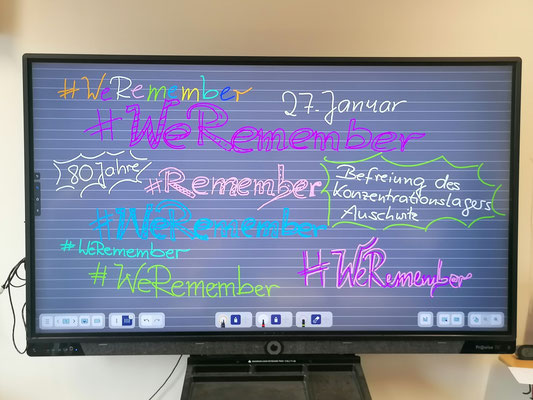 #WeRemember
27. Januar
#WeRemember
80 Jahre
#Remember
Befreiung des
Konzentrationslagers
Auschwitz
#WeRemember
#WeRemember
#WeRemember
#WeRemember